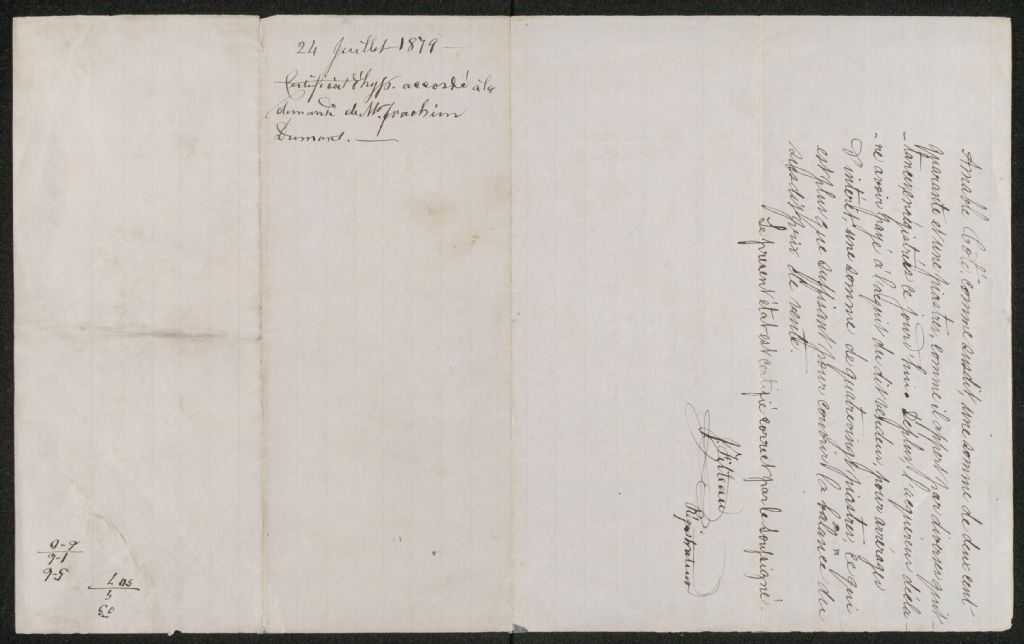 24 Juillet 1879 —
Certificat d'hyp. accordé à la
demande de Mr. Joachim
Dumont. —
Amable Coté comme susdit, une somme de deux cent
quarante et une piastres, comme il appert par diverses quit-
-tances enregistrées ce jourd'hui. De plus l'acquéreur décla-
-re avoir payé à l'acquit du dit vendeur, pour arrérages
d'intérêt, une somme de quatrevingt piastres, ce qui
est plus que suffisant pour couvrir la balance du
susdit prix de vente.
Le présent état est certifié correct par le soussigné.
Régistrateur
6-0
1-6
5-6
5